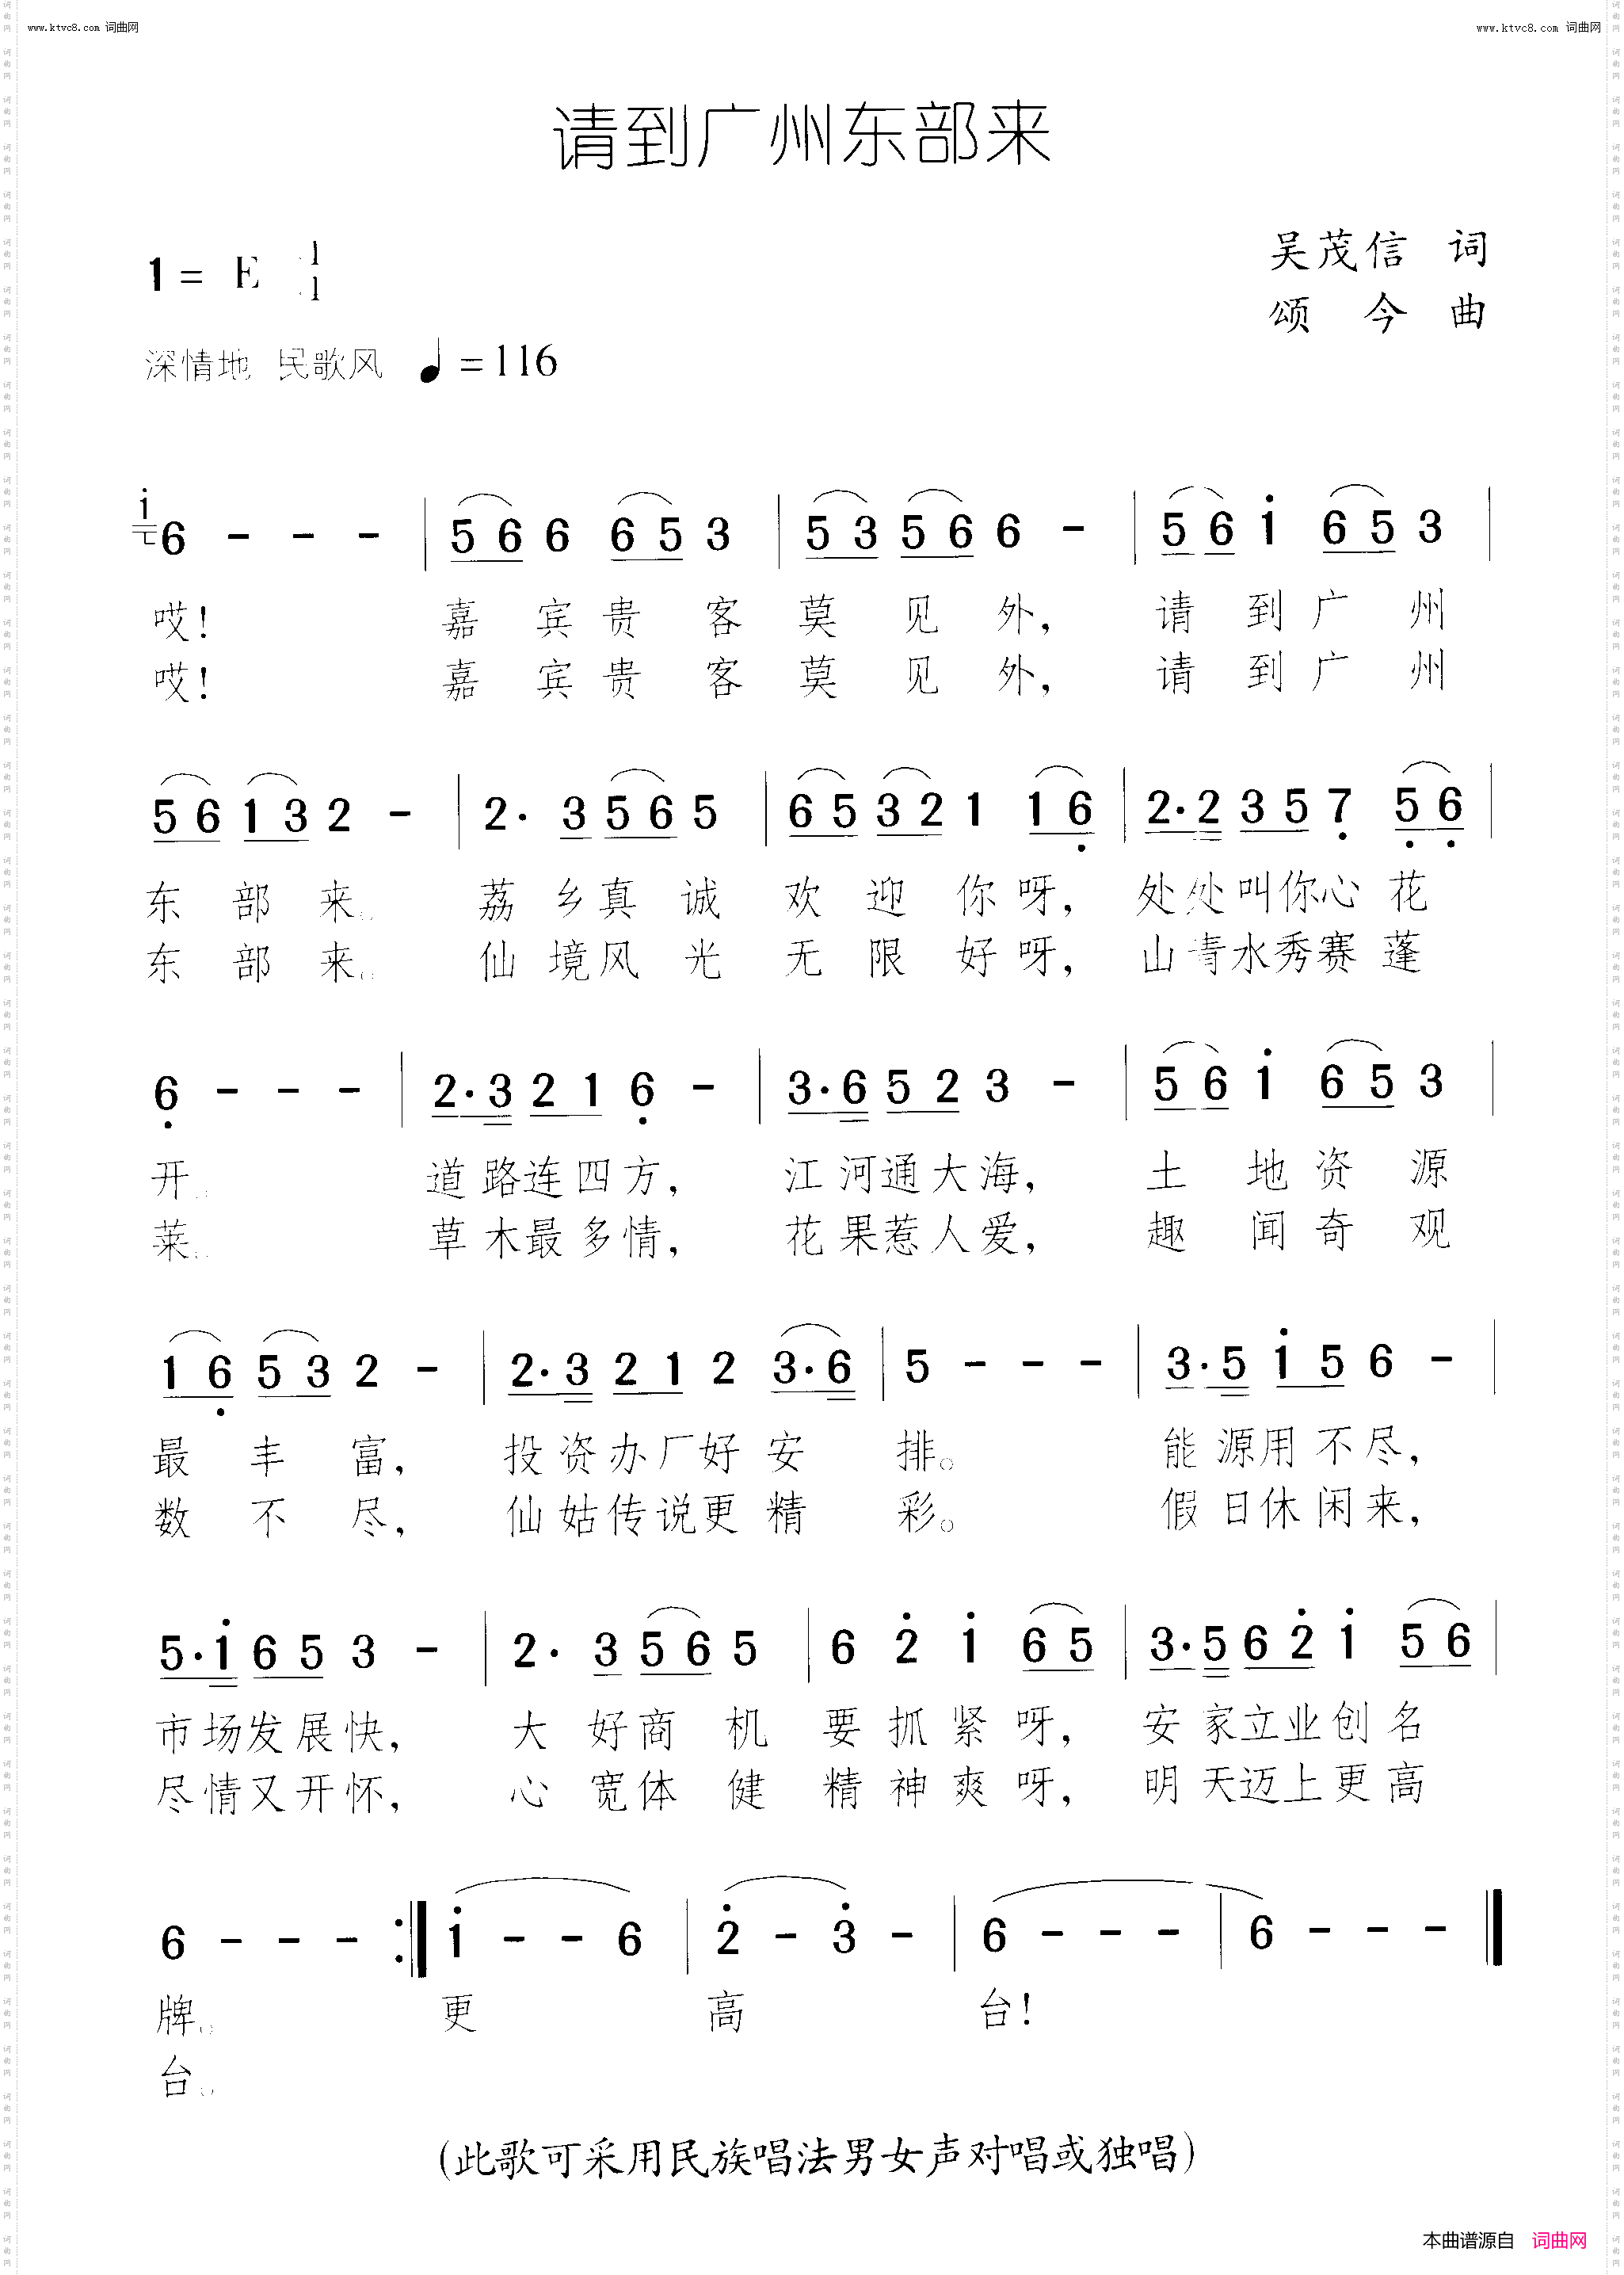 www.ktvc8.com 词曲网 www.ktvc8.com 词曲网
请到广州东部来
1 = E 吴茂信 词
颂 今 曲
深情地 民歌风 ♩=116
i 6 - - - | 5 6 6 6 5 3 | 5 3 5 6 6 - | 5 6 i 6 5 3 |
哎! 嘉 宾 贵 客 莫 见 外, 请 到 广 州
哎! 嘉 宾 贵 客 莫 见 外, 请 到 广 州
5 6 1 3 2 - | 2· 3 5 6 5 | 6 5 3 2 1 1 6̣ | 2·2 3 5 7̣ 5̣ 6̣ |
东 部 来。 荔 乡 真 诚 欢 迎 你 呀, 处 处 叫 你 心 花
东 部 来。 仙 境 风 光 无 限 好 呀, 山 青 水 秀 赛 蓬
6̣ - - - | 2·3 2 1 6̣ - | 3·6 5 2 3 - | 5 6 i 6 5 3 |
开。 道 路 连 四 方, 江 河 通 大 海, 土 地 资 源
莱。 草 木 最 多 情, 花 果 惹 人 爱, 趣 闻 奇 观
1 6̣ 5 3 2 - | 2·3 2 1 2 3·6 | 5 - - - | 3·5 i 5 6 - |
最 丰 富, 投 资 办 厂 好 安 排。 能 源 用 不 尽,
数 不 尽, 仙 姑 传 说 更 精 彩。 假 日 休 闲 来,
5·i 6 5 3 - | 2· 3 5 6 5 | 6 2̇ i 6 5 | 3·5 6 2̇ i 5 6 |
市 场 发 展 快, 大 好 商 机 要 抓 紧 呀, 安 家 立 业 创 名
尽 情 又 开 怀, 心 宽 体 健 精 神 爽 呀, 明 天 迈 上 更 高
6 - - - :‖ i - - 6 | 2̇ - 3̇ - | 6 - - - | 6 - - - ‖
牌。 更 高 台!
台。
(此歌可采用民族唱法男女声对唱或独唱)
本曲谱源自 词曲网